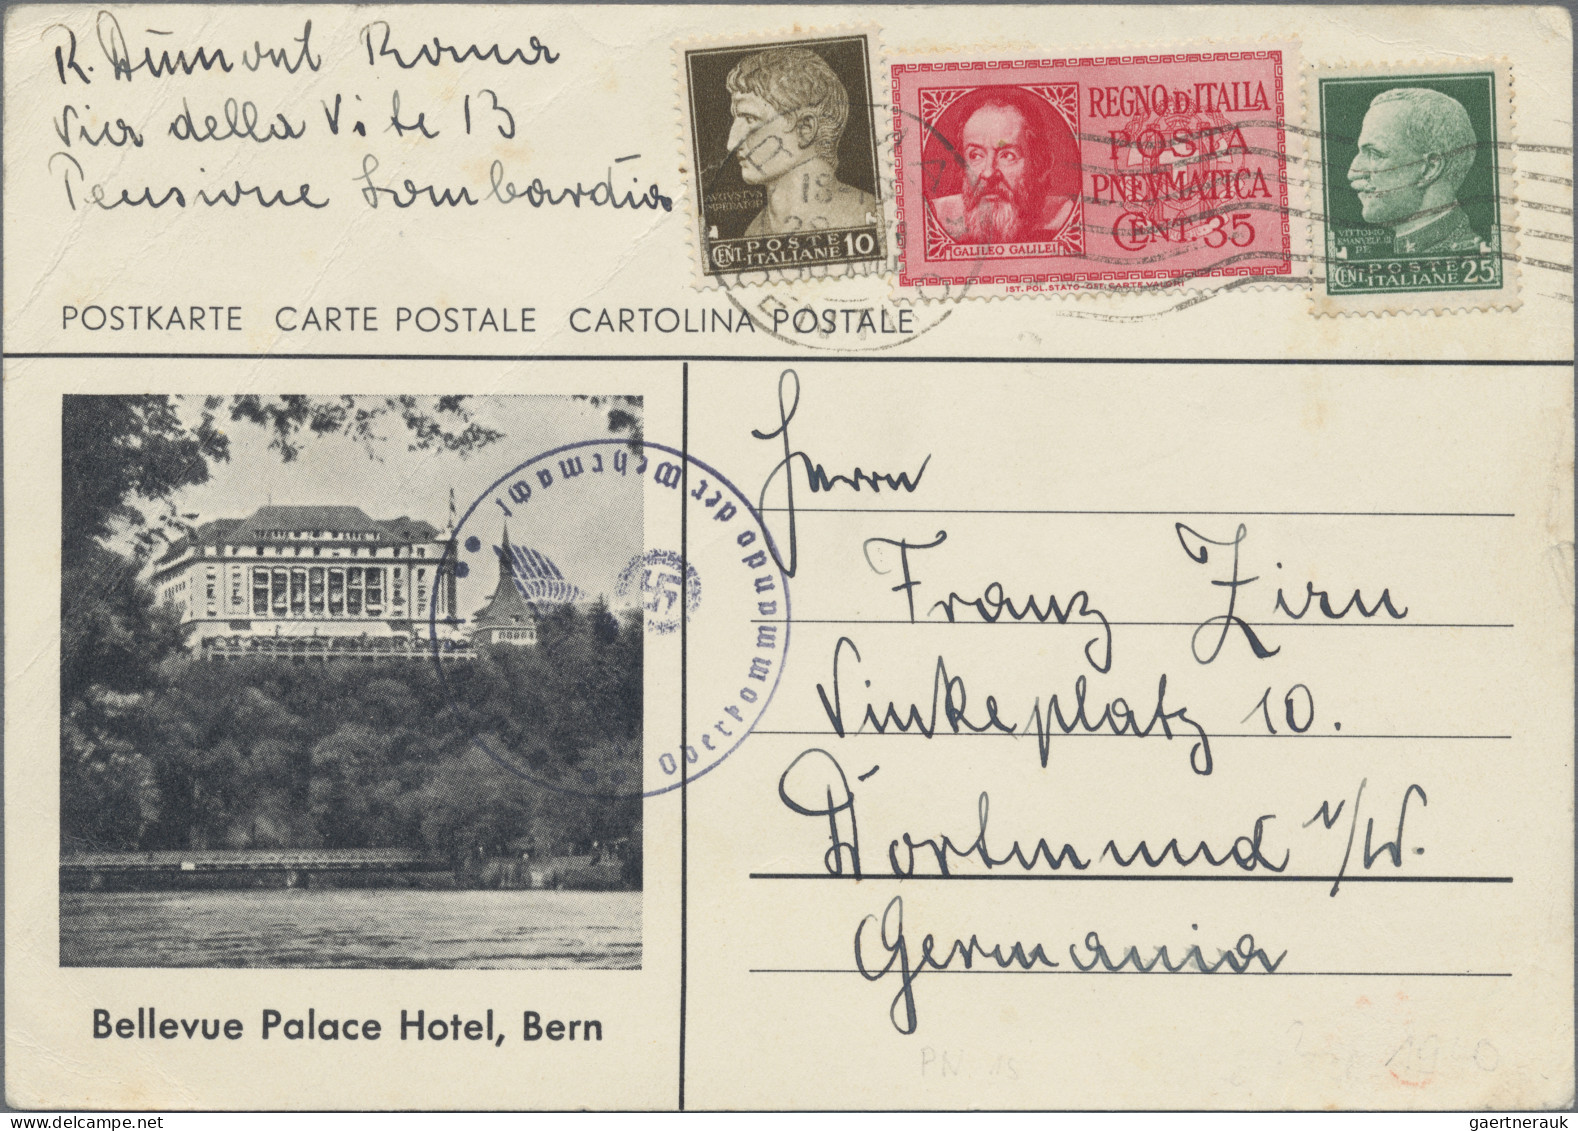 R. Dumont Roma
Via della Vite 13
Pensione Lombardia
AUGUSTUS
IMPERATOR
CENT. POSTE ITALIANE 10
REGNO D'ITALIA
POSTA
PNEVMATICA
CENT. 35
GALILEO GALILEI
IST. POL. STATO-OFF. CARTE-VALORI
VITTORIO
EMANUELE III
RE
CENT. POSTE ITALIANE 25
ROMA
CENTRO
POSTKARTE CARTE POSTALE CARTOLINA POSTALE
Oberkommando der Wehrmacht
Herrn
Franz Zirn
Vinkeplatz 10.
Dortmund i/W.
Germania
Bellevue Palace Hotel, Bern
PN. 15
gaertnerauk